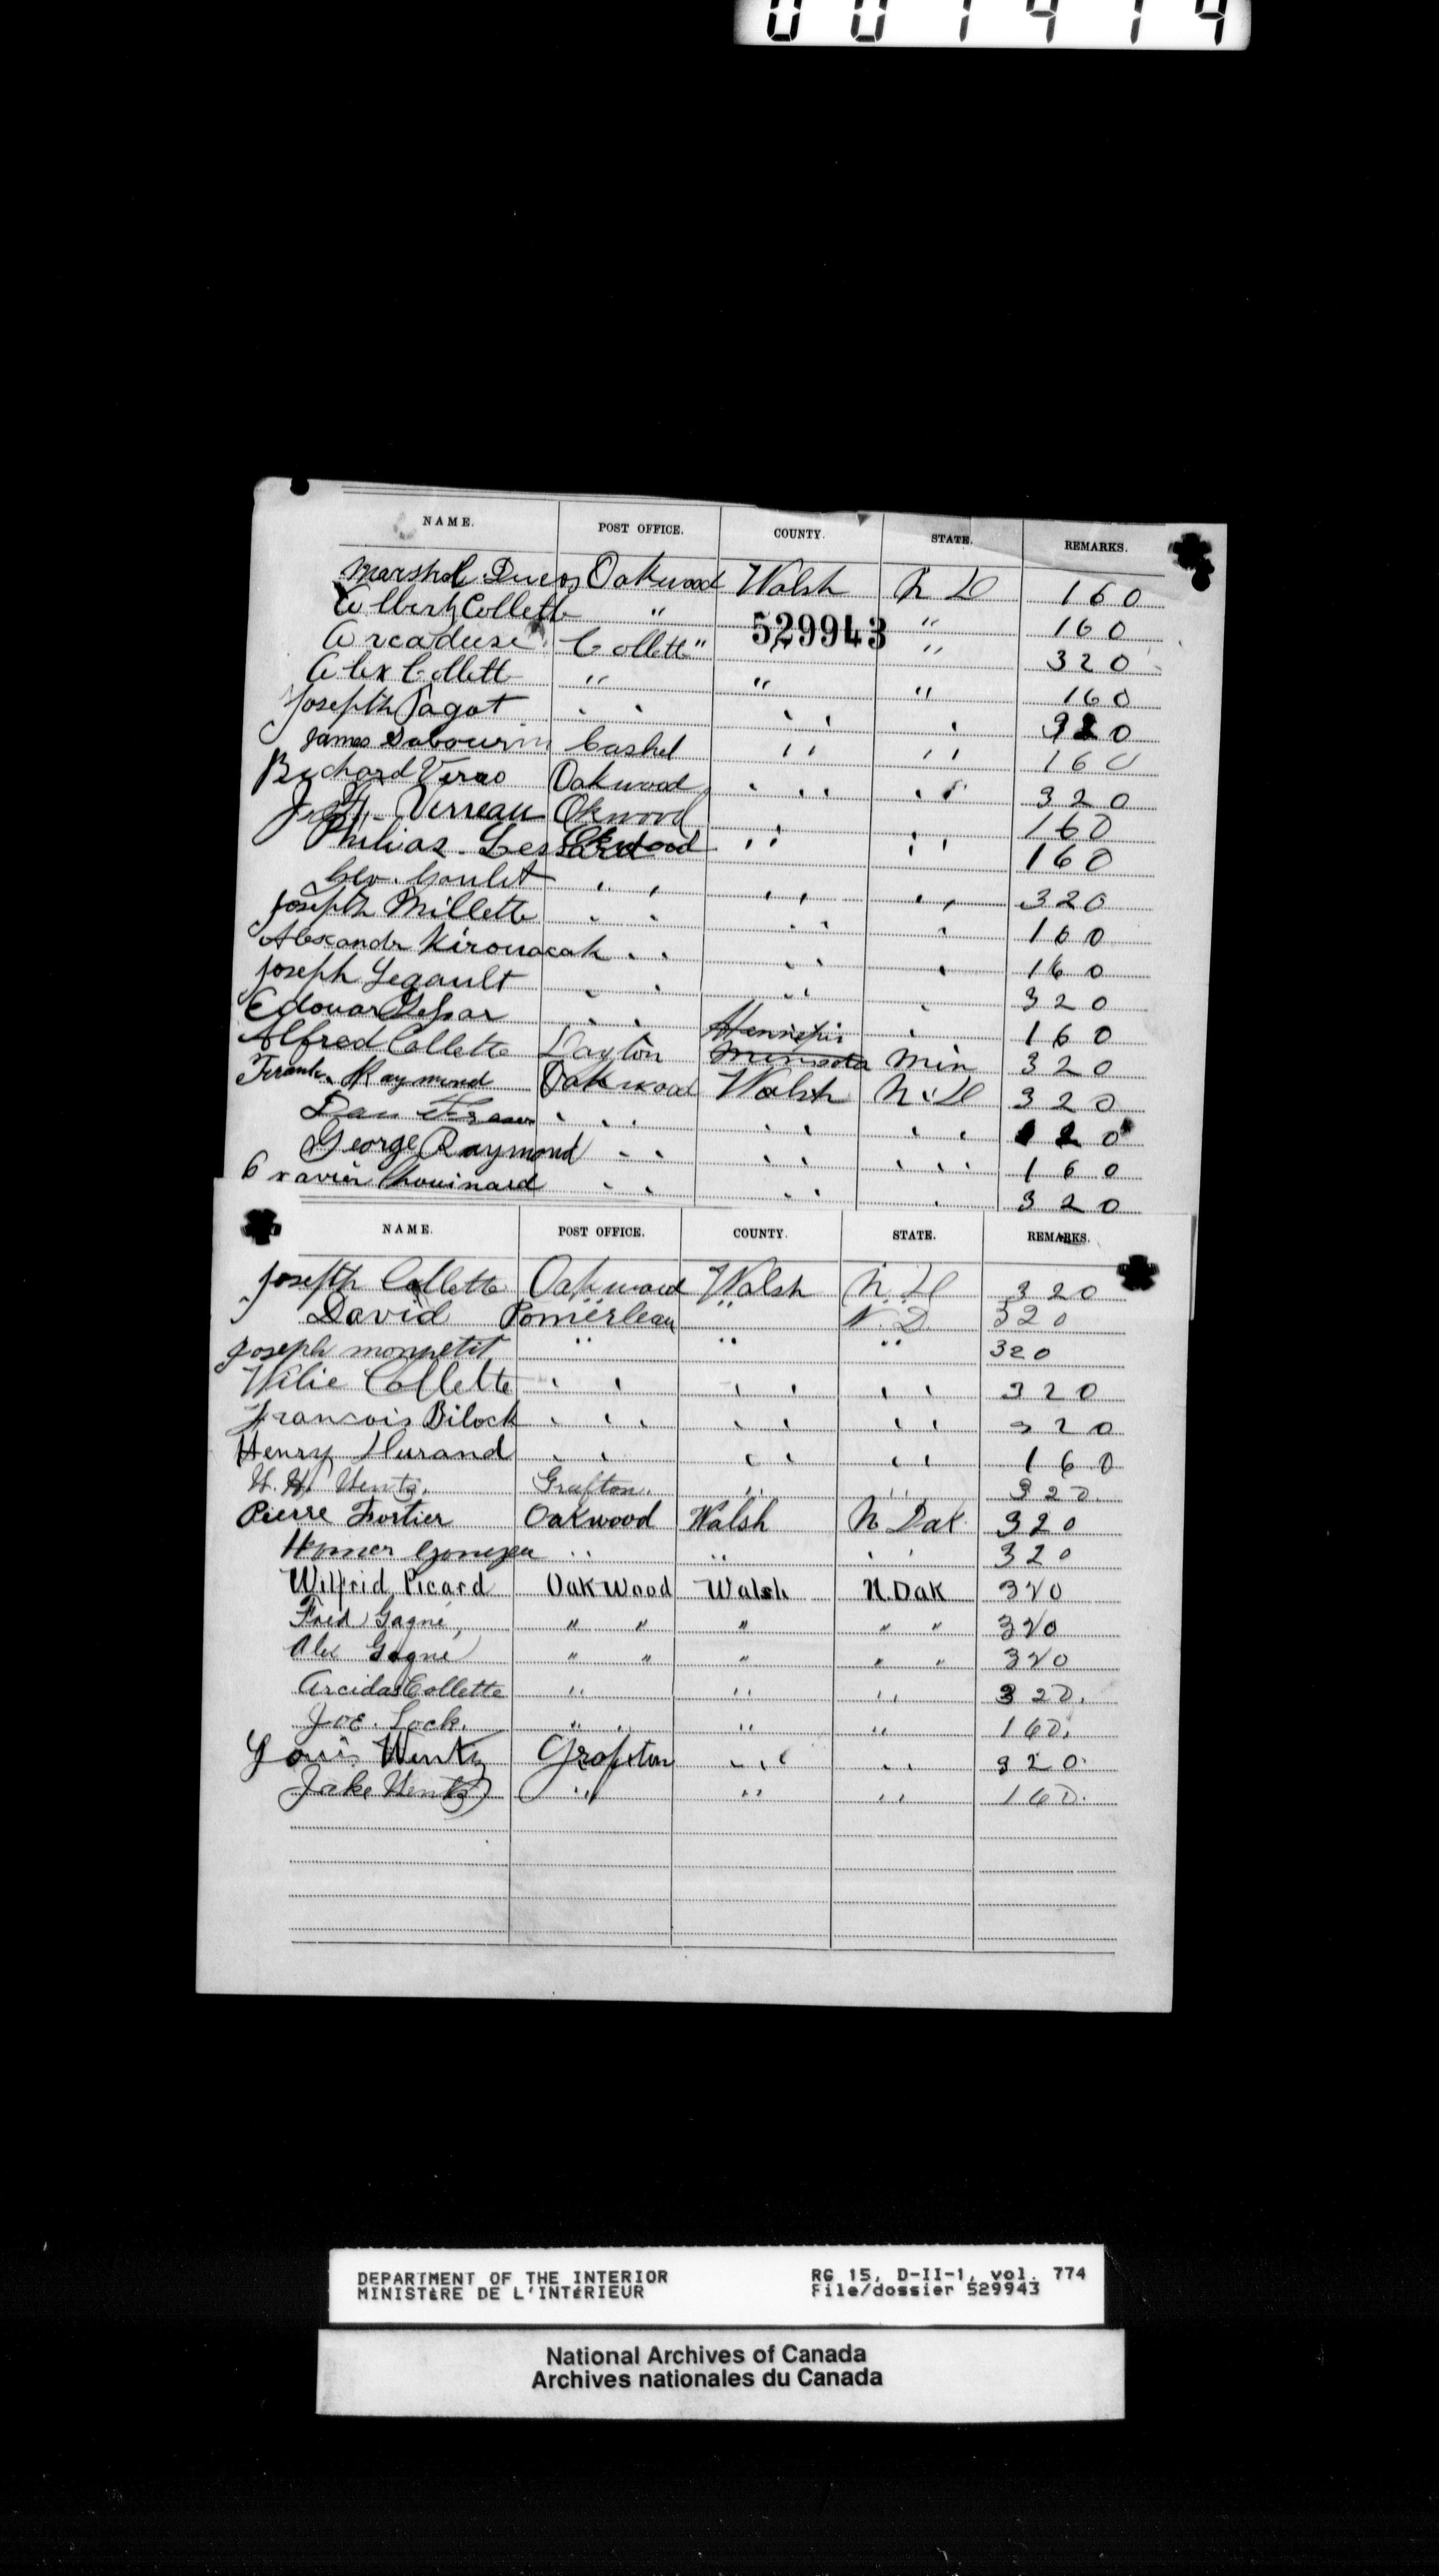 001414
NAME. POST OFFICE. COUNTY. STATE. REMARKS.
Marshal Ducos Oakwood Walsh N D 160
Albert Collette " " 160
529943
Arcaduse Collett " " " 320
Alex Collett " " " 160
Joseph Pagot " " " 320
James Sabourin Cashel " " 160
Richard Verao Oakwood " " 320
Verreau Okwood " " 160
Philias Lessard Okwood " " 160
Geo. Goulet " " " 320
Joseph Millette " " " 160
Alexandr Kirouacak " " " 160
Joseph Legault " " " 320
Edouar Lessar " " " 160
Alfred Collette Dayton Hennepin Minnesota Min 320
Frank Raymond Oakwood Walsh N.D 320
Dan Fraser " " " 120
George Raymond " " " 160
Exavier Chouinard " " " 320
NAME. POST OFFICE. COUNTY. STATE. REMARKS.
Joseph Collette Oakwood Walsh N.D 320
David Pomerleau " " N.D. 320
Joseph monpetit " " " 320
Wilie Collette " " " 320
Francois Bilock " " " 320
Henry Durand " " " 160
H. H. Wentz. Grafton. " " 320.
Pierre Fortier Oakwood Walsh N Dak. 320
Homer " " " 320
Wilfrid Picard Oak Wood Walsh N.Dak 320
Fred Gagné " " " " " 320
Alex Gagné " " " " " 320
Arcidas Collette " " " 320.
Joe. Lock. " " " 160.
Louis Wentz Grafton " " 320.
Jake Wentz " " " 160.
DEPARTMENT OF THE INTERIOR RG 15, D-II-1, vol. 774
MINISTÈRE DE L'INTÉRIEUR File/dossier 529943
National Archives of Canada
Archives nationales du Canada